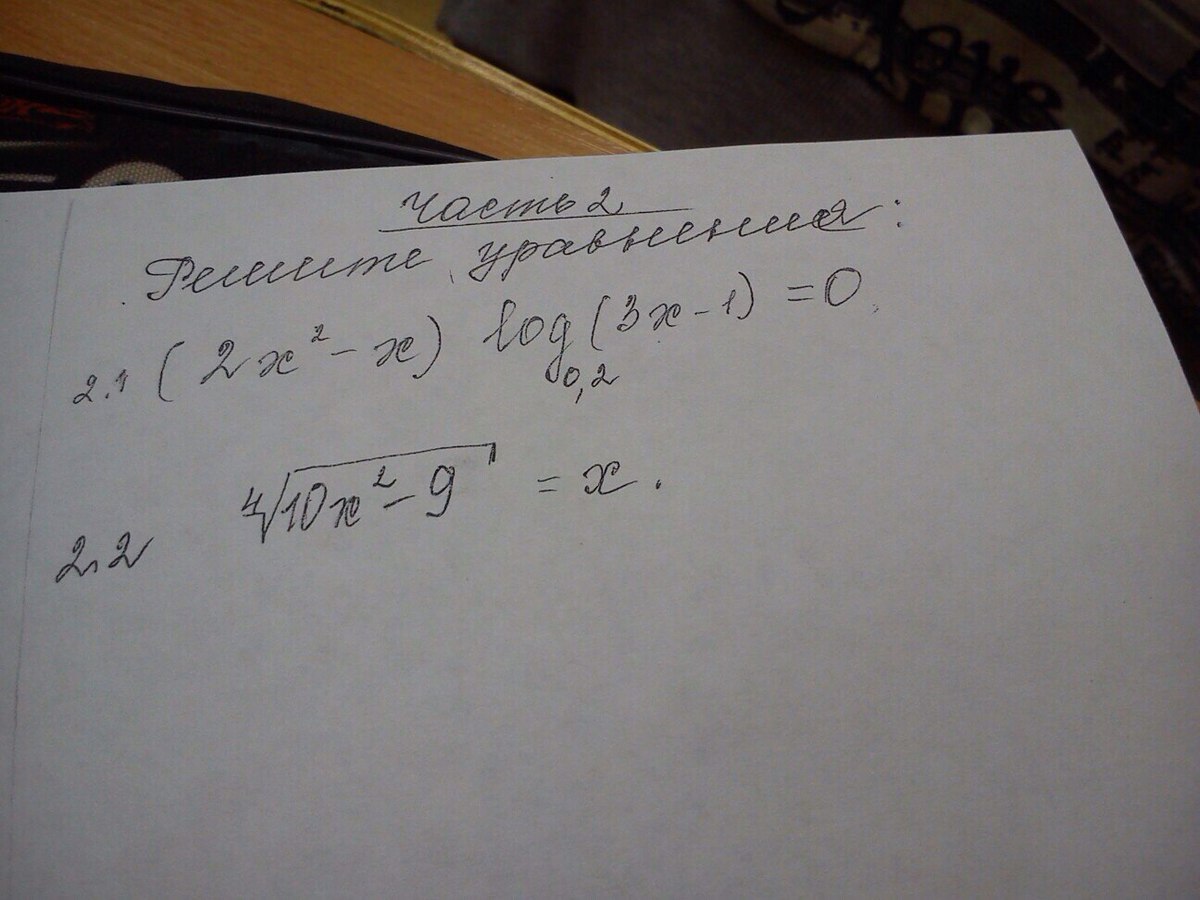 Часть 2
Решите уравнения:
2.1 (2x² - x) log₀,₂(3x - 1) = 0.
2.2 ∜(10x² - 9) = x.